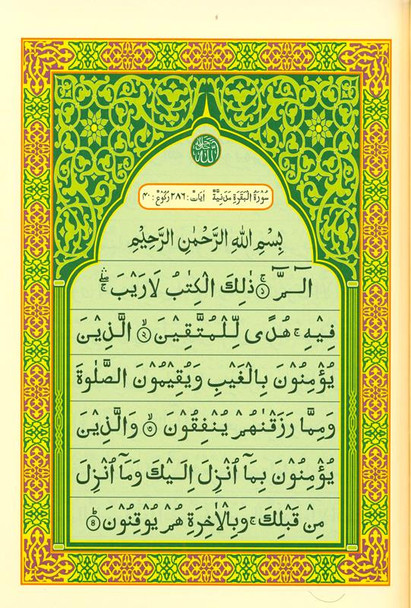 الله
سُوْرَةُ الْبَقَرَةِ مَدَنِيَّةٌ اٰيَات: ٢٨٦ رُكُوْع: ٤٠
بِسْمِ اللهِ الرَّحْمٰنِ الرَّحِيْمِ
الٓـمّٓ ۚ﴿١﴾ ذٰلِكَ الْكِتٰبُ لَا رَيْبَ ۛۚ
فِيْهِ ۛۚ هُدًى لِّلْمُتَّقِيْنَ ۙ﴿٢﴾ الَّذِيْنَ
يُؤْمِنُوْنَ بِالْغَيْبِ وَيُقِيْمُوْنَ الصَّلٰوةَ
وَمِمَّا رَزَقْنٰهُمْ يُنْفِقُوْنَ ۙ﴿٣﴾ وَالَّذِيْنَ
يُؤْمِنُوْنَ بِمَآ اُنْزِلَ اِلَيْكَ وَمَآ اُنْزِلَ
مِنْ قَبْلِكَ ۚ وَبِالْاٰخِرَةِ هُمْ يُوْقِنُوْنَ ؕ﴿٤﴾